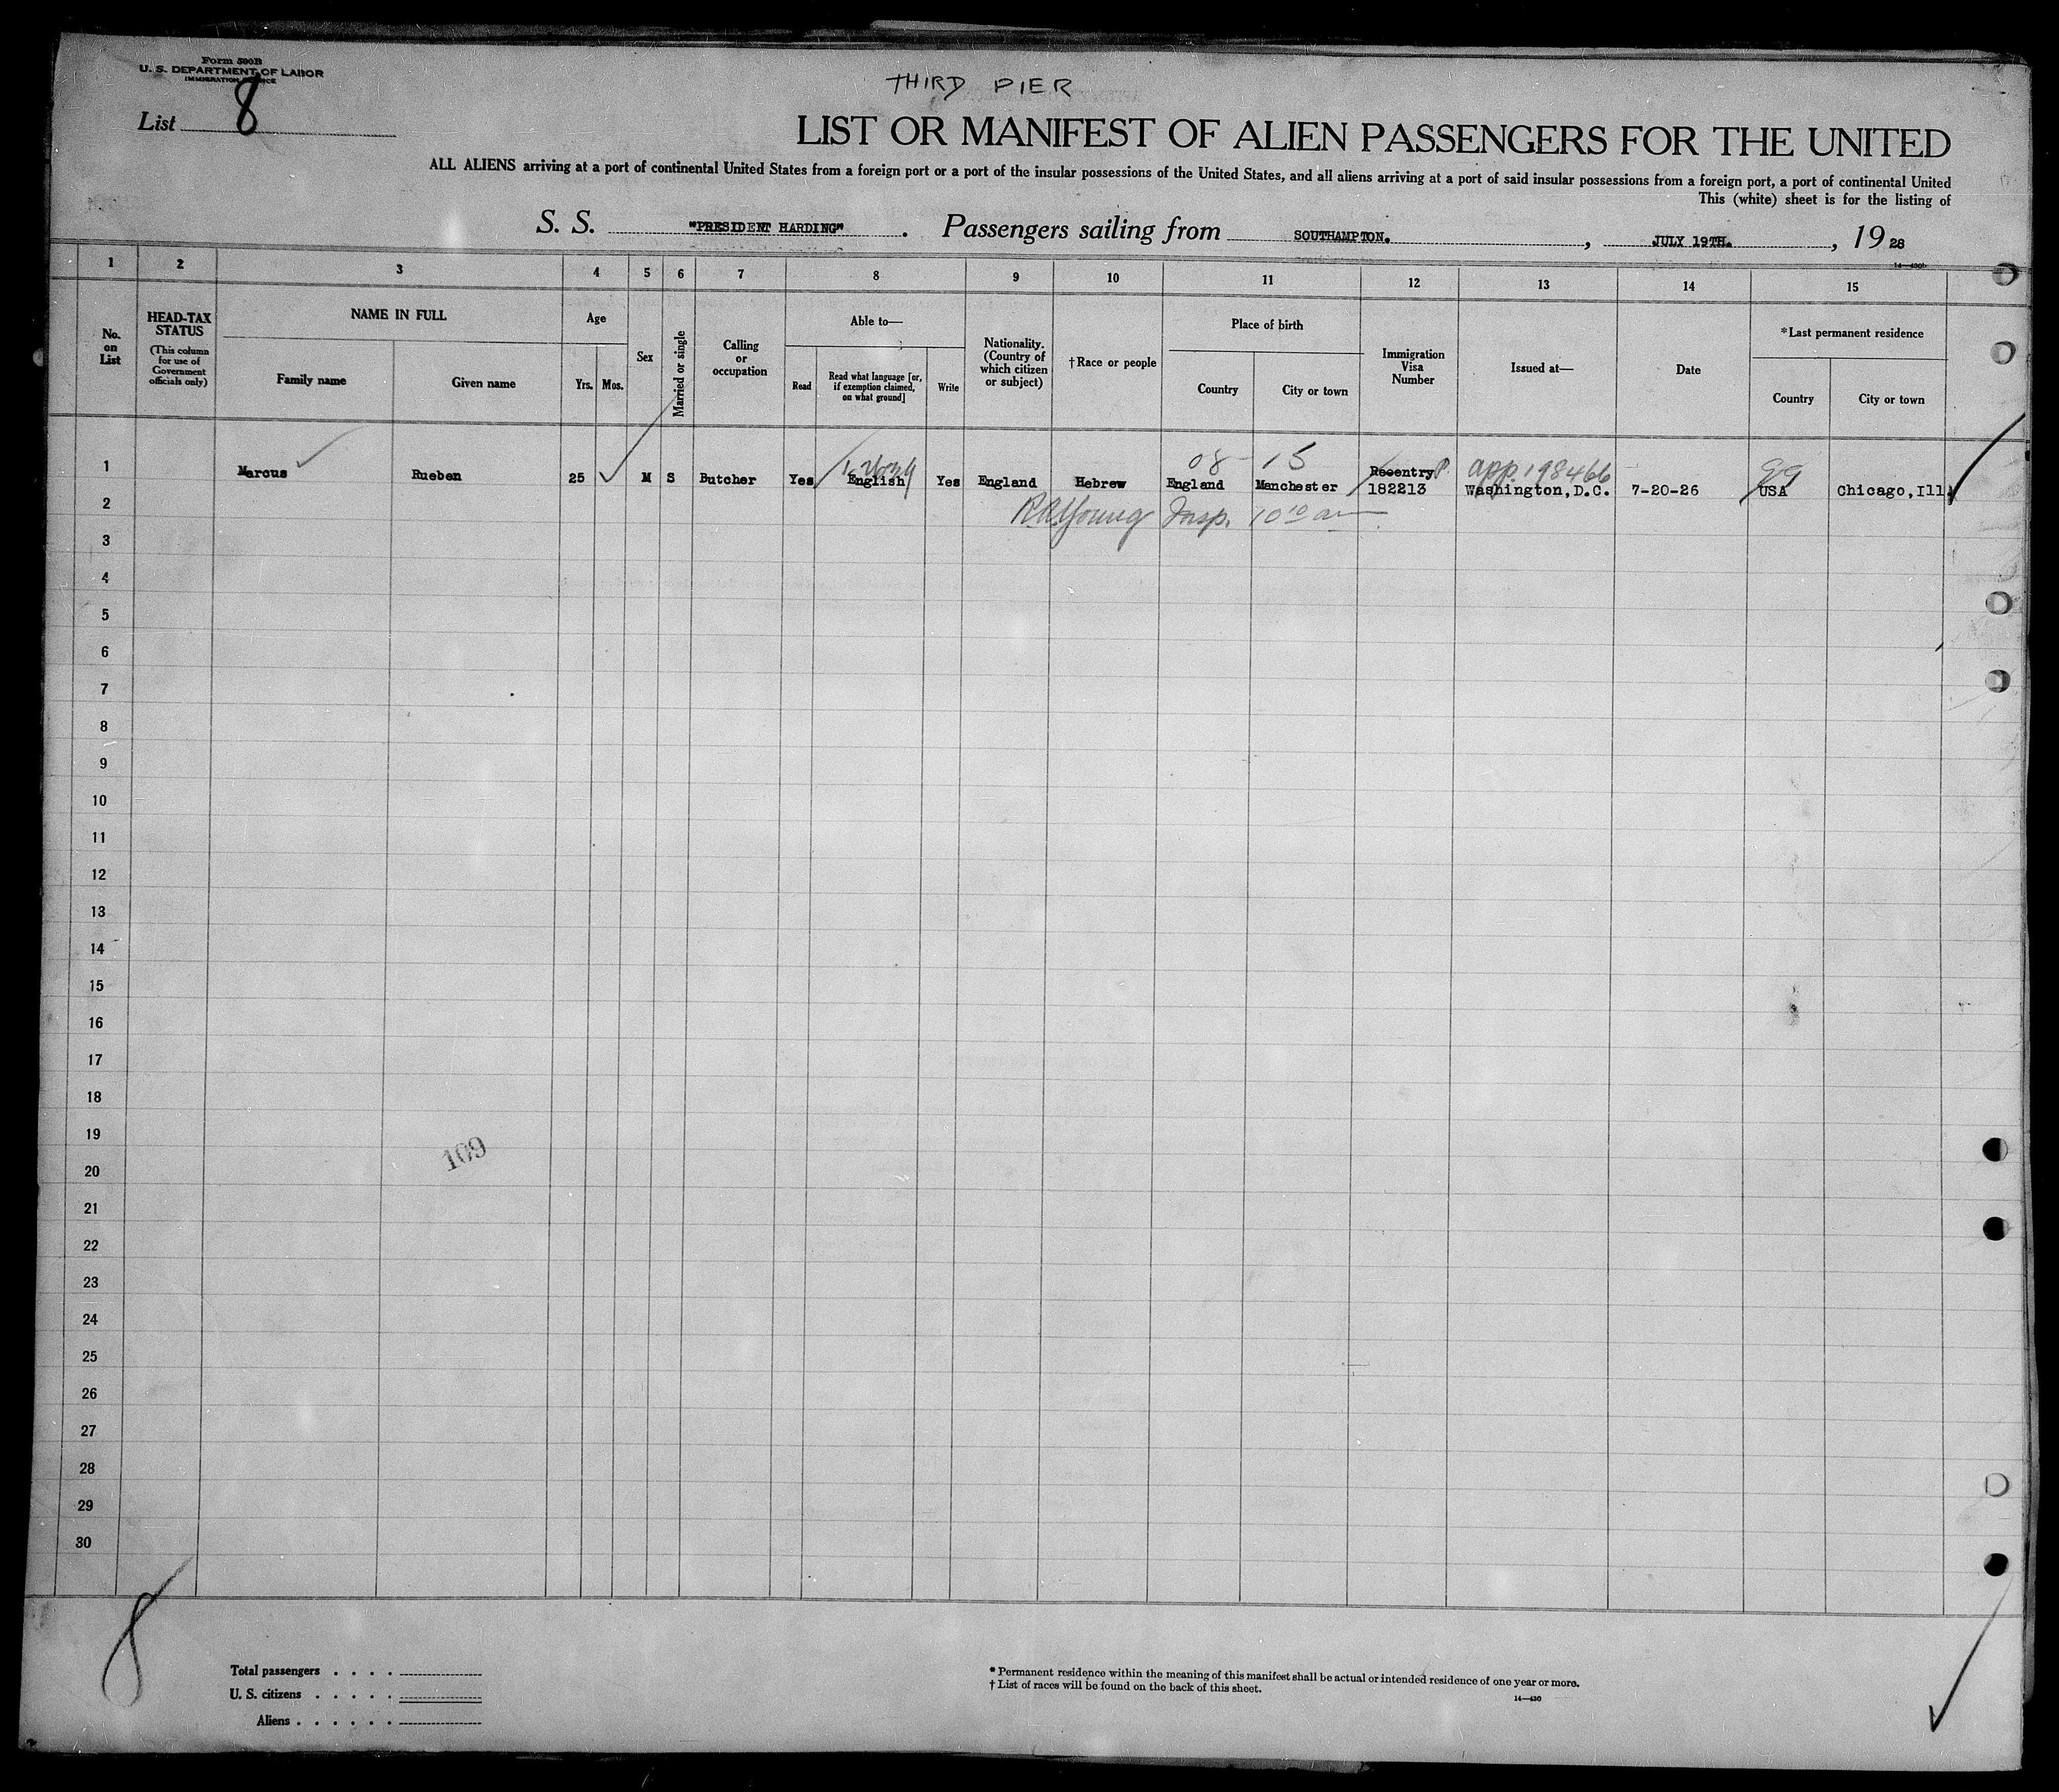 Form 500B
U. S. DEPARTMENT OF LABOR
IMMIGRATION SERVICE
List 8
THIRD PIER
LIST OR MANIFEST OF ALIEN PASSENGERS FOR THE UNITED
ALL ALIENS arriving at a port of continental United States from a foreign port or a port of the insular possessions of the United States, and all aliens arriving at a port of said insular possessions from a foreign port, a port of continental United
This (white) sheet is for the listing of
S. S. "PRESIDENT HARDING". Passengers sailing from SOUTHAMPTON., JULY 19TH., 1928
1 2 3 4 5 6 7 8 9 10 11 12 13 14 15
No. on List
HEAD-TAX STATUS
(This column for use of Government officials only)
NAME IN FULL
Family name
Given name
Age
Yrs. Mos.
Sex
Married or single
Calling or occupation
Able to—
Read
Read what language [or, if exemption claimed, on what ground]
Write
Nationality. (Country of which citizen or subject)
†Race or people
Place of birth
Country
City or town
Immigration Visa Number
Issued at—
Date
*Last permanent residence
Country
City or town
08 15 app. 198466 99
1 Marcus Rueben 25 M S Butcher Yes English Yes England Hebrew England Manchester Reentry P. 182213 Washington,D.C. 7-20-26 USA Chicago,Ill.
2 Young Insp. 10 10 am
3
4
5
6
7
8
9
10
11
12
13
14
15
16
17
18
19
109
20
21
22
23
24
25
26
27
28
29
30
8
Total passengers . . . .
U. S. citizens . . . . .
Aliens . . . . . .
* Permanent residence within the meaning of this manifest shall be actual or intended residence of one year or more.
† List of races will be found on the back of this sheet.
14—430